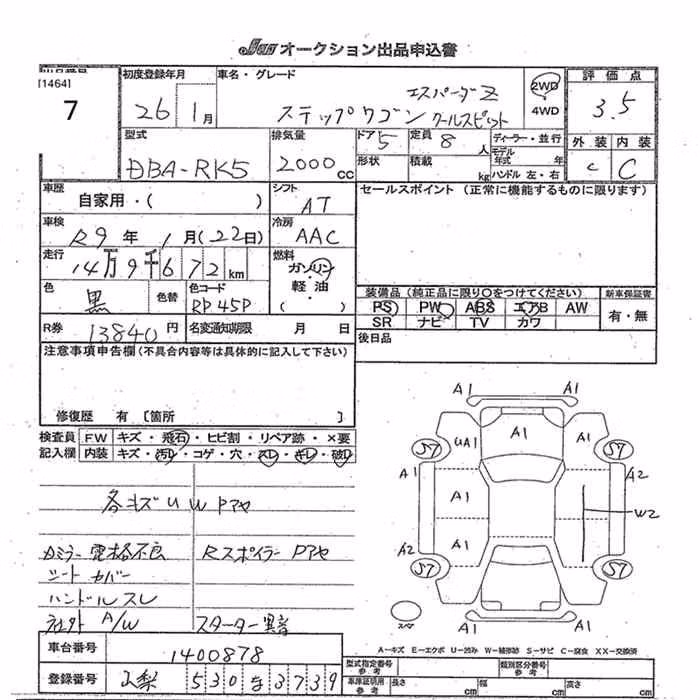 オークション出品申込書
[1464]
7
初度登録年月
26 1月
車名・グレード
エスパーダZ
ステップワゴン クールスピット
2WD
4WD
評価点
3.5
型式
DBA-RK5
排気量
2000 CC
ドア 5
定員 8 人
ディーラー・並行
モデル年式 年
形状
積載 kg
ハンドル 左・右
外装 内装
C C
車歴
自家用・( )
シフト
AT
セールスポイント (正常に機能するものに限ります)
車検
R9年 1月(22日)
冷房
AAC
走行
14万9千672km
燃料
ガソリン・軽油
( )
色
黒
色替
色コード
RP45P
装備品 (純正品に限り○をつけてください)
新車保証書
PS PW ABS エアB AW
SR ナビ TV カワ
有・無
R券
13840円
名変通知期限 月 日
後日品
注意事項申告欄(不具合内容等は具体的に記入して下さい)
修復歴 有 〔箇所 〕
検査員
FW キズ・飛石・ヒビ割・リペア跡・×要
記入欄
内装 キズ・汚レ・コゲ・穴・スレ・キレ・破レ
各キズUWPアヤ
Dミラー電格不良 RスポイラーPアヤ
シートカバー
ハンドルスレ
社外A/W スターター異音
A1 A1
UA1 A1 A1
S7 S7
A1 A1 A2
W2
A2 A1
S7 S7
スペア
A−キズ E−エクボ U−凹み W−補修跡 S−サビ C−腐食 XX−交換済
車台番号
1400878
登録番号
山梨 530 す 3739
型式指定番号 参考
類別区分番号 参考
車庫証明用 参考
長さ cm 幅 cm 高さ cm